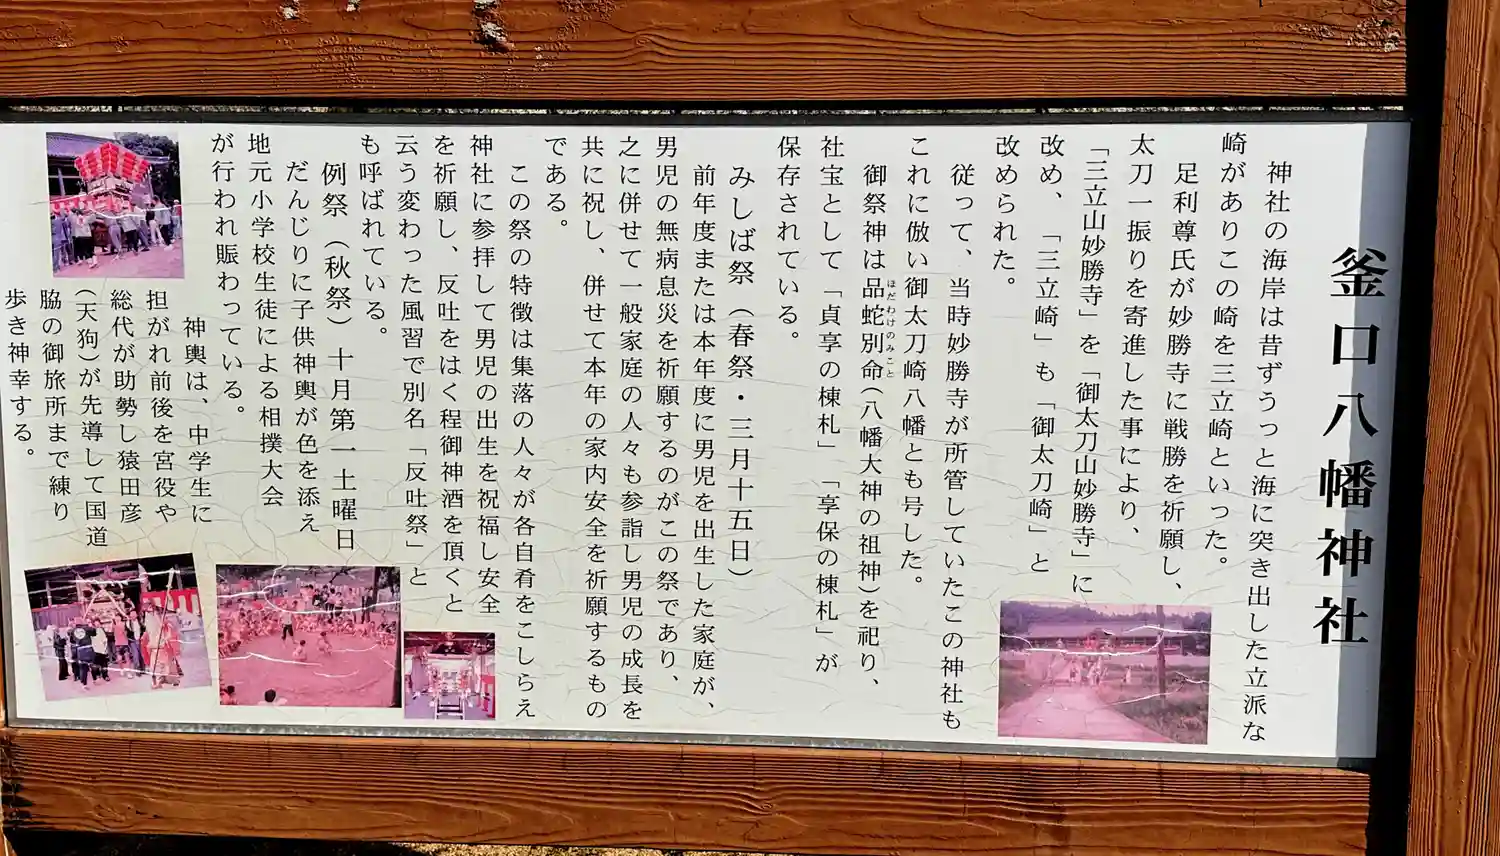 釜口八幡神社
神社の海岸は昔ずうっと海に突き出した立派な
崎がありこの崎を三立崎といった。
足利尊氏が妙勝寺に戦勝を祈願し、
太刀一振りを寄進した事により、
「三立山妙勝寺」を「御太刀山妙勝寺」に
改め、「三立崎」も「御太刀崎」と
改められた。
従って、当時妙勝寺が所管していたこの神社も
これに倣い御太刀崎八幡とも号した。
御祭神は品蛇別命(八幡大神の祖神)を祀り、
ほだわけのみこと
社宝として「貞享の棟札」「享保の棟札」が
保存されている。
みしば祭(春祭・三月十五日)
前年度または本年度に男児を出生した家庭が、
男児の無病息災を祈願するのがこの祭であり、
之に併せて一般家庭の人々も参詣し男児の成長を
共に祝し、併せて本年の家内安全を祈願するもの
である。
この祭の特徴は集落の人々が各自肴をこしらえ
神社に参拝して男児の出生を祝福し安全
を祈願し、反吐をはく程御神酒を頂くと
云う変わった風習で別名「反吐祭」と
も呼ばれている。
例祭(秋祭)十月第一土曜日
だんじりに子供神輿が色を添え
地元小学校生徒による相撲大会
が行われ賑わっている。
神輿は、中学生に
担がれ前後を宮役や
総代が助勢し猿田彦
(天狗)が先導して国道
脇の御旅所まで練り
歩き神幸する。